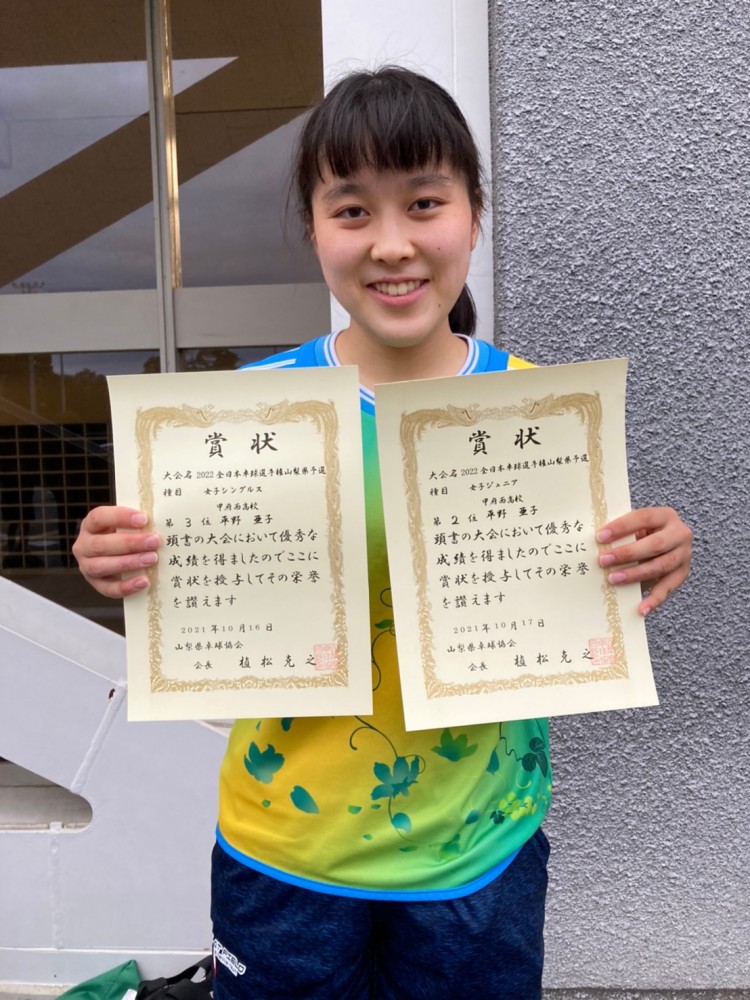 賞状
大会名 2022全日本卓球選手権山梨県予選
種目 女子シングルス
甲府西高校
第 3 位 平野 亜子
頭書の大会において優秀な
成績を得ましたのでここに
賞状を授与してその栄誉
を讃えます
2021年10月16日
山梨県卓球協会
会長 植松克之
賞状
大会名 2022全日本卓球選手権山梨県予選
種目 女子ジュニア
甲府西高校
第 2 位 平野 亜子
頭書の大会において優秀な
成績を得ましたのでここに
賞状を授与してその栄誉
を讃えます
2021年10月17日
山梨県卓球協会
会長 植松克之